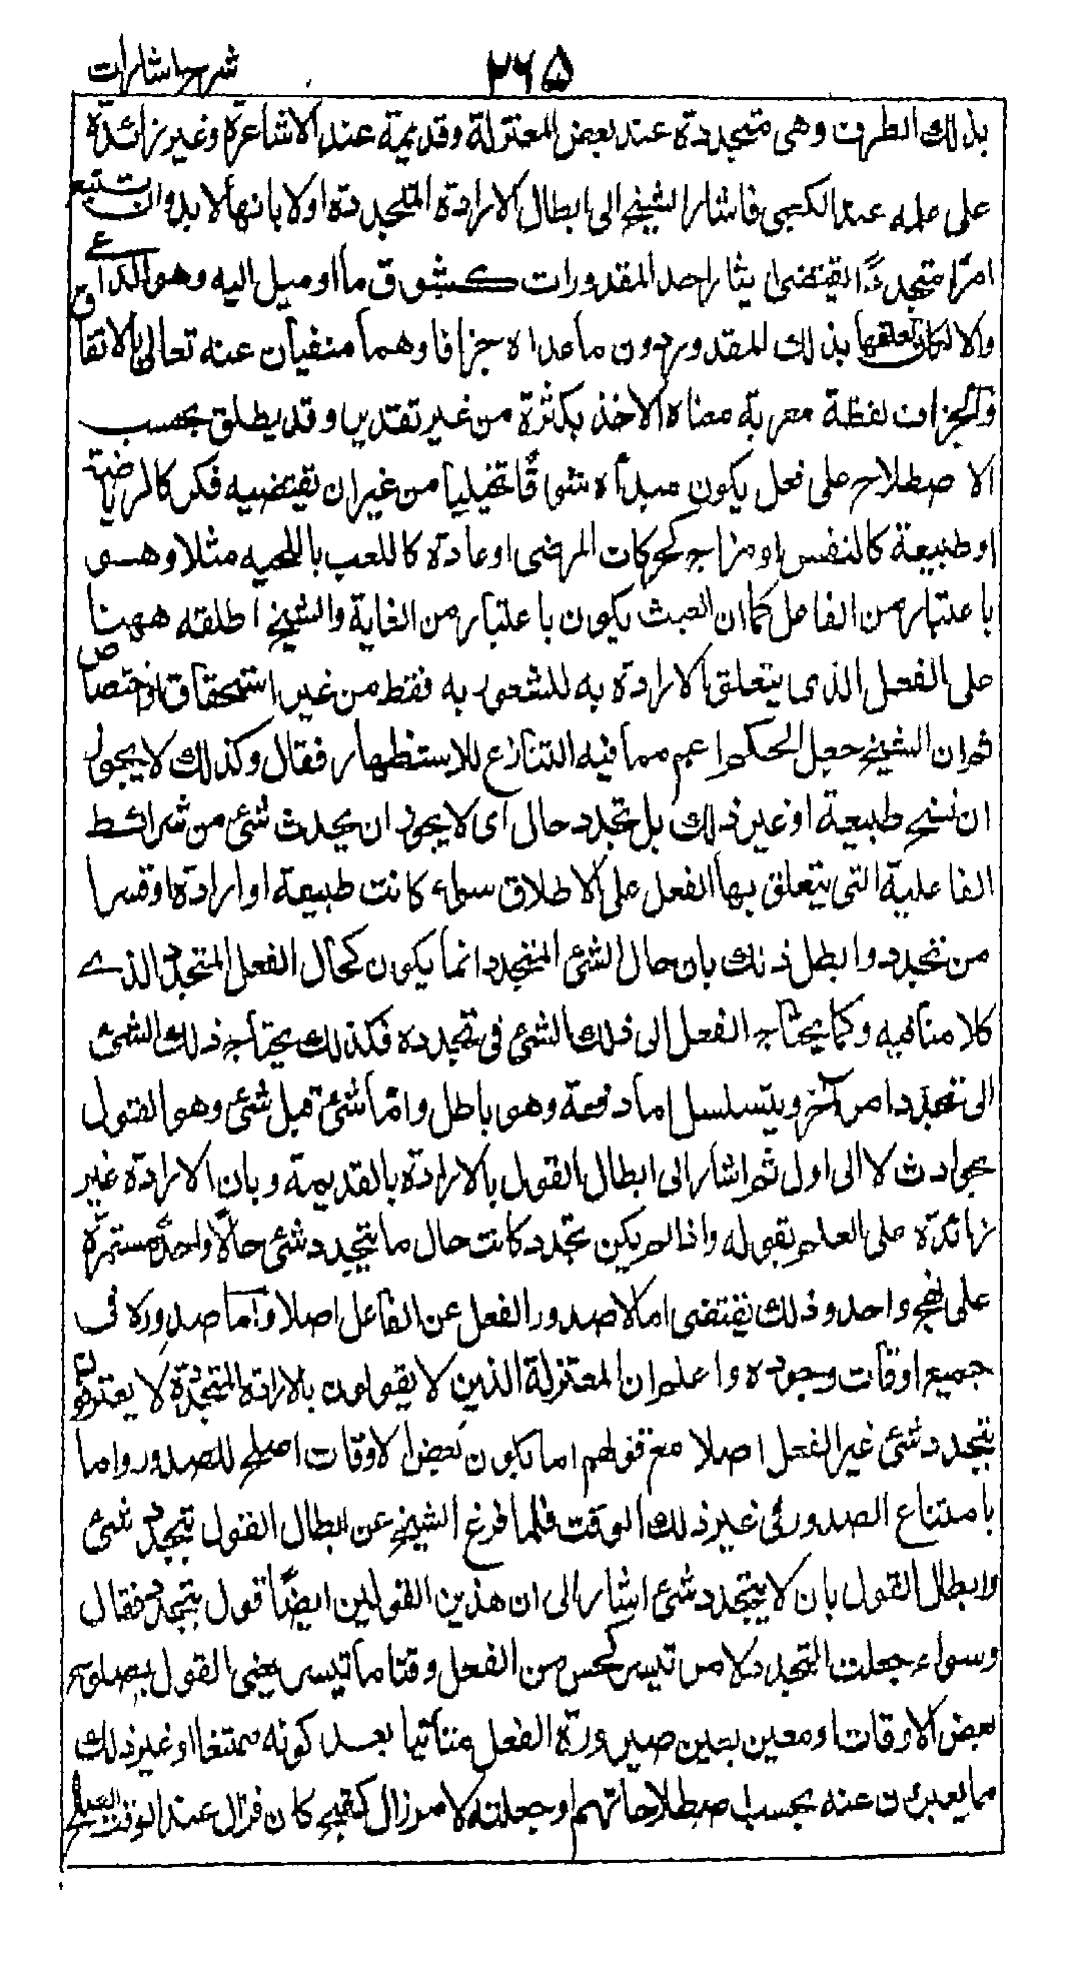 شرح اشارات
٢٦٥
بذلك الطرف وهى متجددة عند بعض المعتزلة وقديمة عند الاشاعرة وغير زائدة
على علمه عند الكعبى فاشار الشيخ الى ابطال الارادة المتجددة اولا بانها لا بد وان تستتبع
امرا متجددًا يقتضى ايثار احد المقدورات كشوق ما او ميل اليه وهو الداعى
والا لكان تعلقها بذلك المقدور دون ما عداه جزافا وهما منفيان عنه تعالى بالاتفاق
والجزاف لفظة معربة معناه الاخذ بكثرة من غير تقدير وقد يطلق بحسب
الاصطلاح على فعل يكون مبدأه شوقًا تخيليا من غير ان يقتضيه فكر كالرياضة
او طبيعة كالنفس او مزاج كحركات المرضى او عادة كاللعب باللحيه مثلا وهو
باعتبار من الفاعل كما ان العبث يكون باعتبار من الغاية والشيخ اطلقه ههنا
على الفعل الذى يتعلق الارادة به للشعور به فقط من غير استحقاق او اختصاص
ثم ان الشيخ جعل الحكم اعم مما فيه التنازع للاستظهار فقال وكذلك لا يجوز
ان تسنح طبيعة او غير ذلك بل تجدد حال اى لا يجوز ان يحدث شئ من شرائط
الفاعلية التى يتعلق بها الفعل على الاطلاق سواء كانت طبيعة او ارادة او قسرا
من تجدد وابطل ذلك بان حال الشئ المتجدد انما يكون كحال الفعل المتجدد الذى
كلامنا فيه وكما يحتاج الفعل الى ذلك الشئ فى تجدده فكذلك يحتاج ذلك الشئ
الى تجدد امر آخر ويتسلسل اما دفعة وهو باطل واما شئ قبل شئ وهو القول
بحوادث لا الى اول ثم اشار الى ابطال القول بالارادة بالقديمة وبان الارادة غير
زائدة على العلم بقوله واذا لم يكن تجدد كانت حال ما يتجدد شئ حالًا واحدة مستمرة
على نهج واحد وذلك يقتضى اما لا صدور الفعل عن الفاعل اصلا واما صدوره فى
جميع اوقات وجوده واعلم ان المعتزلة الذين لا يقولون بالارادة المتجددة لا يعترفون
بتجدد شئ غير الفعل اصلا مع قولهم اما بكون بعض الاوقات اصلح للصدور واما
بامتناع الصدور فى غير ذلك الوقت فلما فرغ الشيخ عن ابطال القول بتجدد شئ
وابطال القول بان لا يتجدد شئ اشار الى ان هذين القولين ايضًا قول بتجدد فقال
وسواء جعلت التجدد لامر تيسر كحسن من الفعل وقتا ما تيسر يعنى القول بصلوح
بعض الاوقات او معين بعين صيرورة الفعل متأتيا بعد كونه ممتنعا او غير ذلك
مما يعبرون عنه بحسب اصطلاحاتهم او جعلته لامر زال كقبح كان فزال عند الوقت الصلح